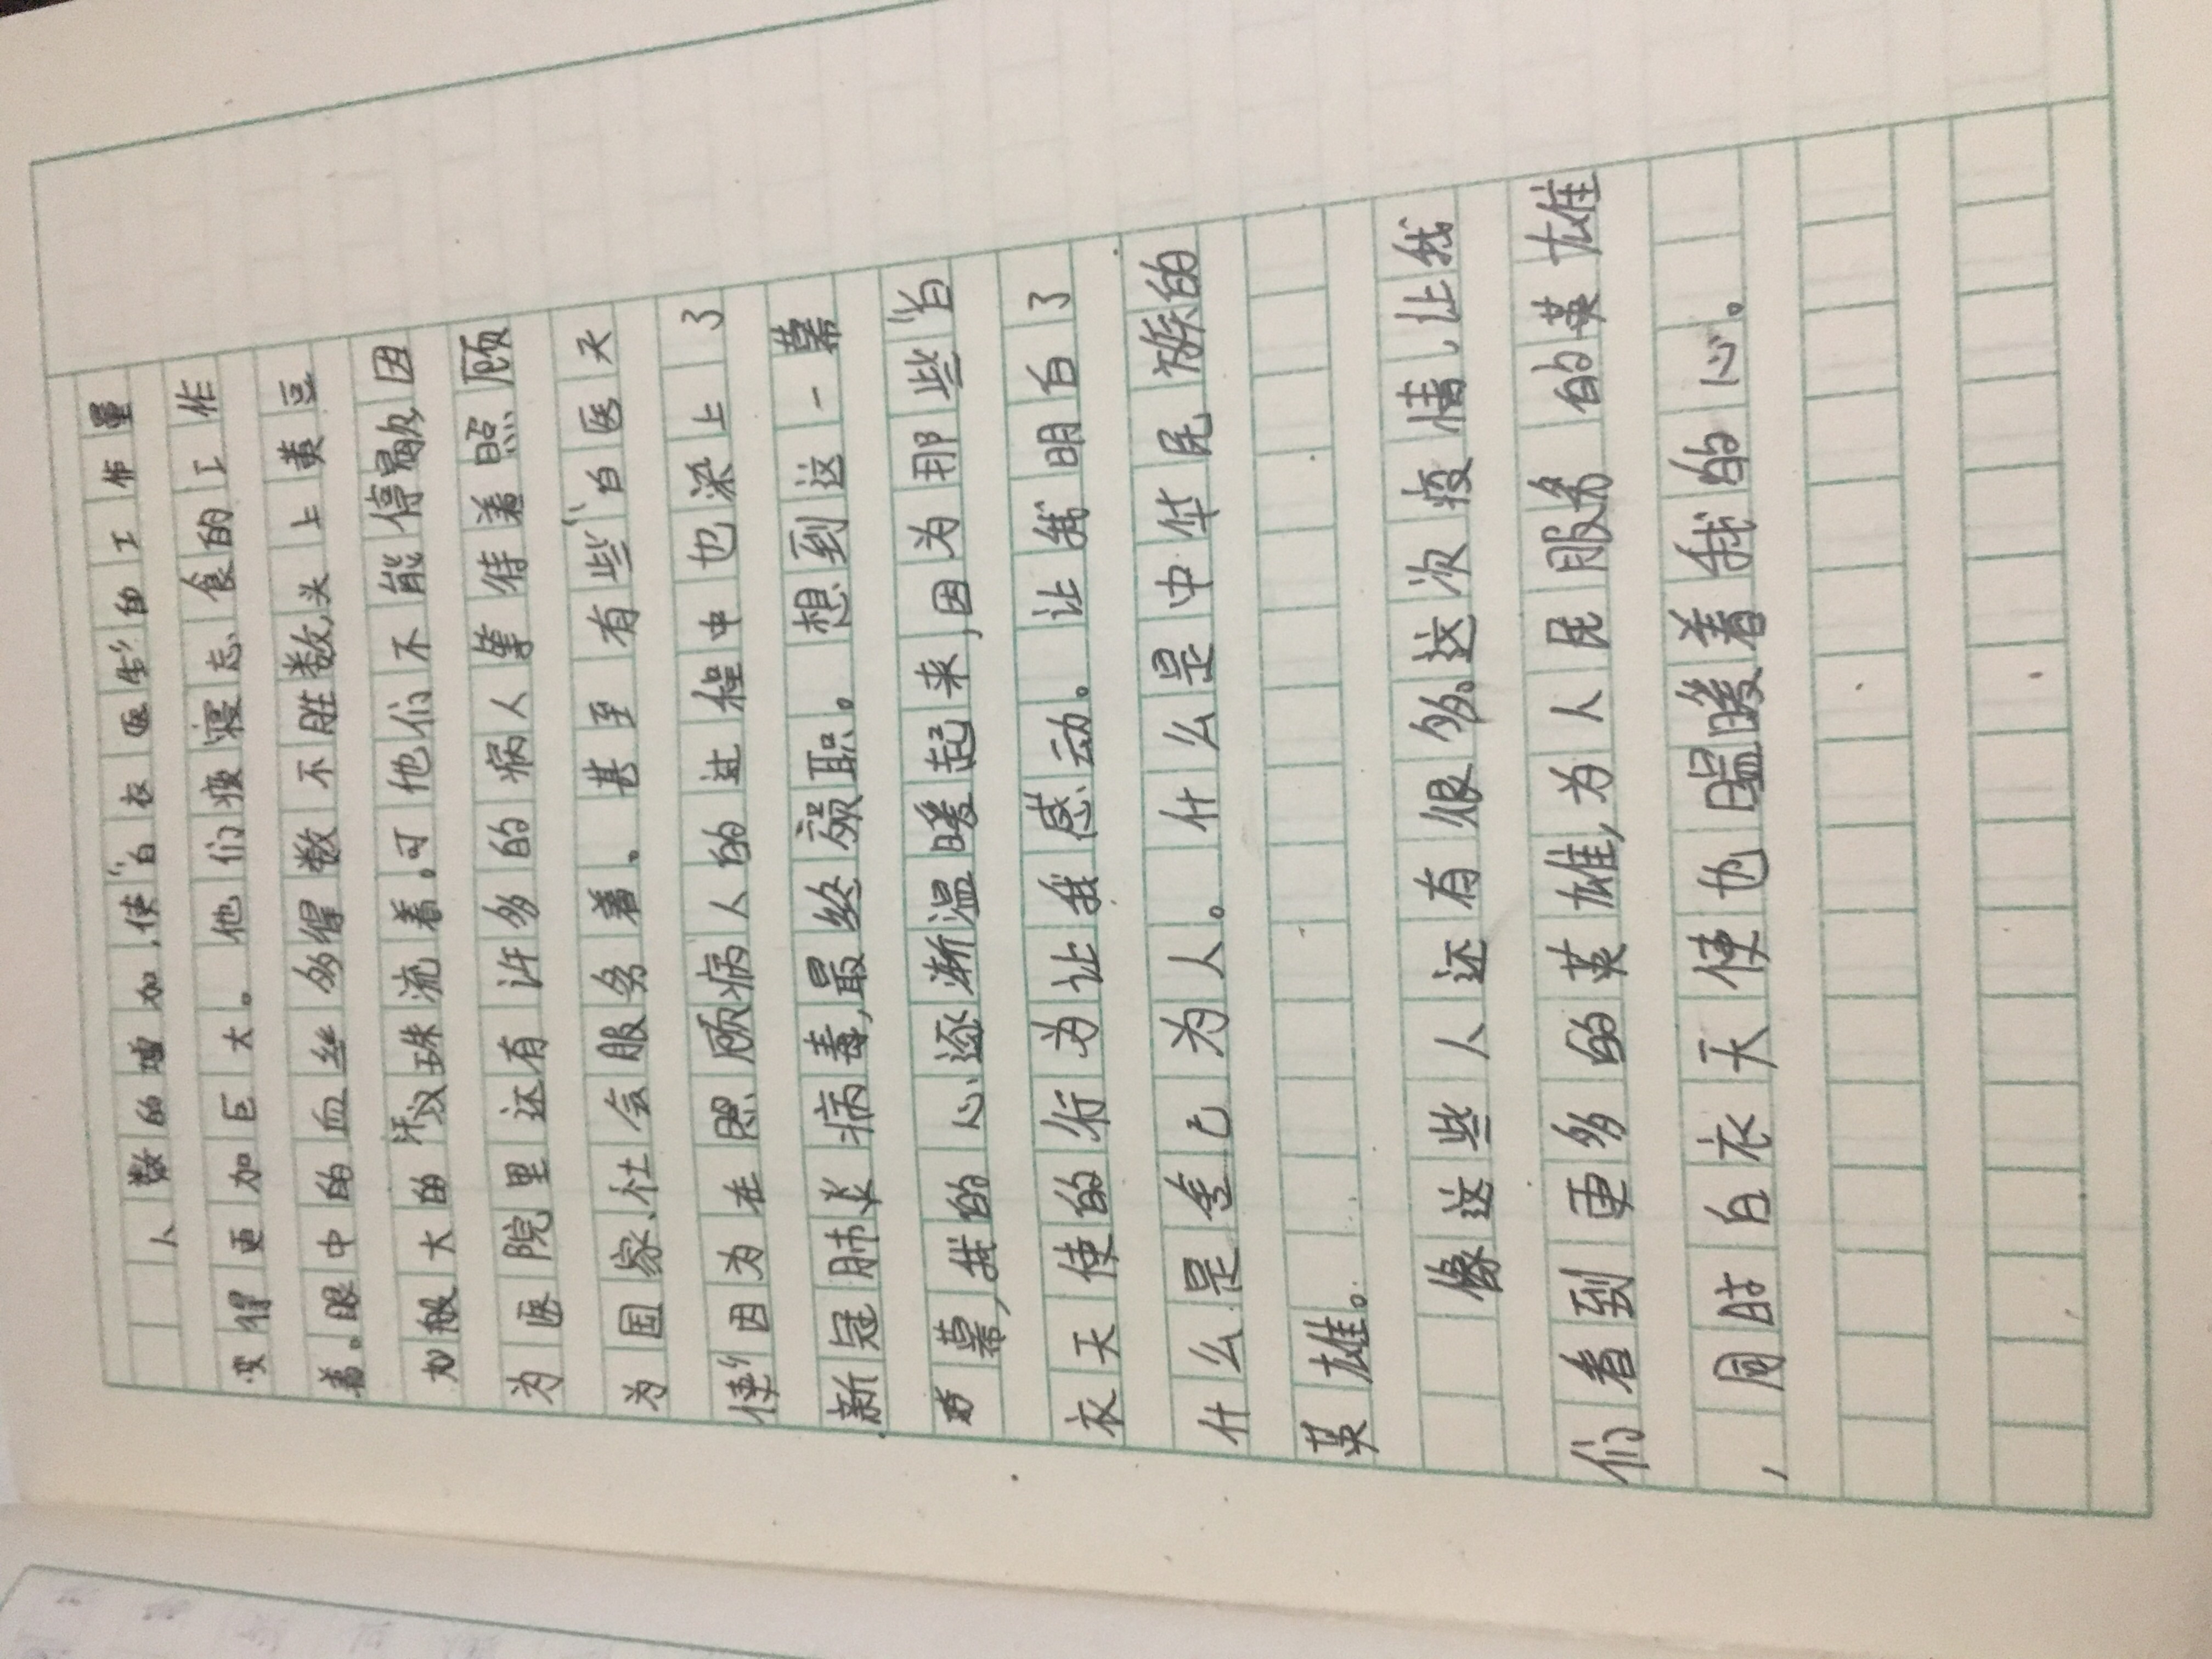 人数的增加,使“白衣医生”的工作量
变得更加巨大。他们废寝忘食的工作
着。眼中的血丝多得数不胜数,头上黄豆
般大的汗珠流着。可他们不能停歇因
为医院里还有许多的病人等待着照顾
为国家、社会服务着。甚至有些“白医天
使”因为在照顾病人的过程中也染上了
新冠肺炎病毒,最终殒职。想到这一幕
幕,我的心逐渐温暖起来,因为那些“白
衣天使的行为让我感动。让我明白了
什么是舍己为人。什么是中华民族的
英雄。
像这些人还有很多。这次疫情,让我
们看到更多的英雄,为人民服务的英雄
,同时白衣天使也温暖着我的心。